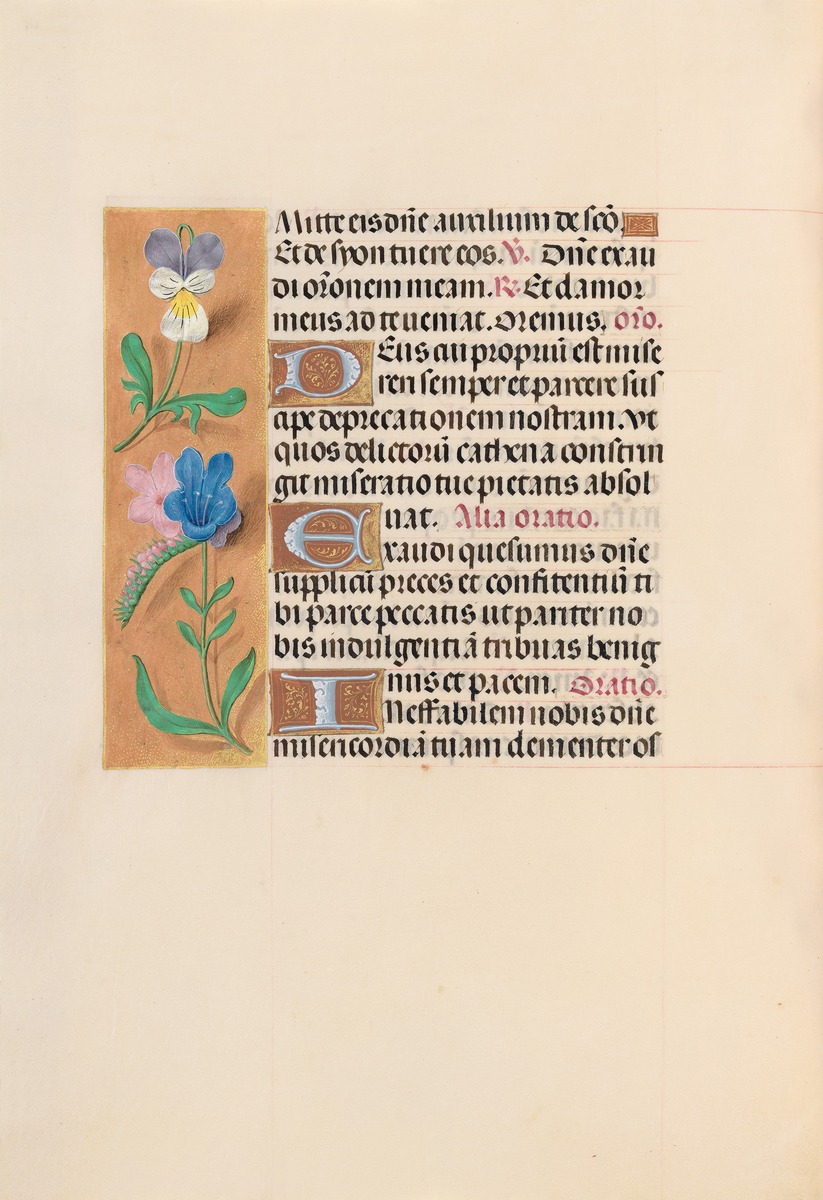 Mitte eis dñe auxilium de scõ.
Et de syon tuere eos. V. Dñe exau
di orõnem meam. R. Et clamor
meus ad te ueniat. Oremus. orõ.
Deus cui propriũ est mise
reri semper et parcere sus
cipe deprecationem nostram. Vt
quos delictorũ cathena constrin
git miseratio tue pietatis absol
uat. Alia oratio.
Exaudi quesumus dñe
supplicũ preces et confitentiũ ti
bi parce peccatis ut pariter no
bis indulgentiã tribuas benig
nus et pacem. Oratio.
Ineffabilem nobis dñe
misericordiã tuam clementer os